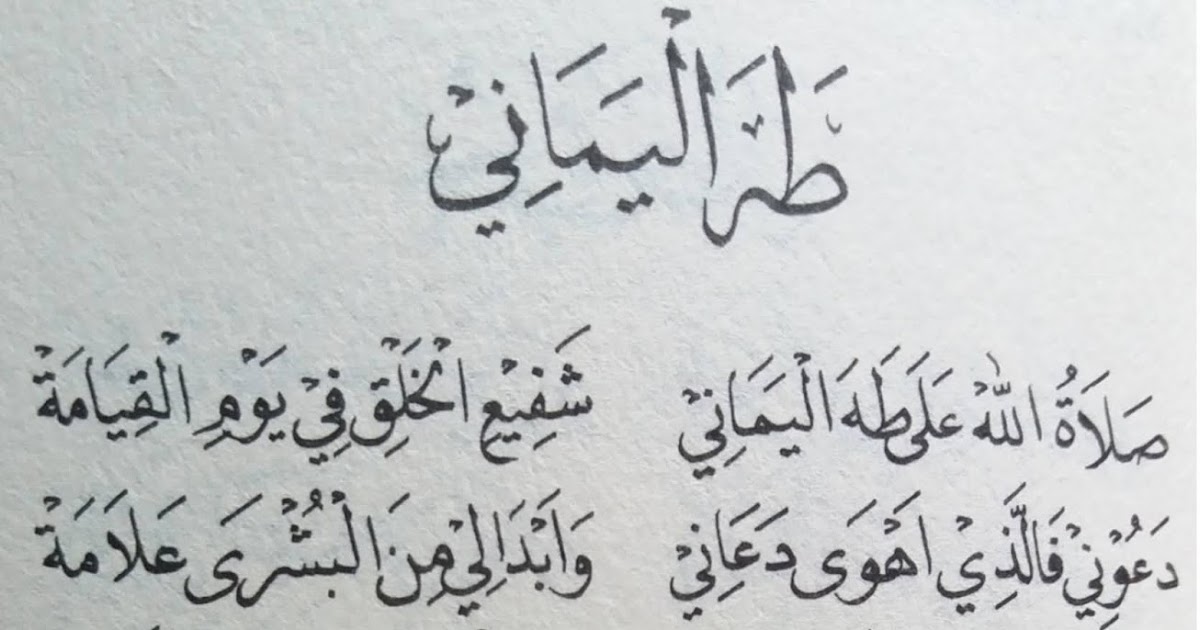 طٰهَ الْيَمَانِيْ
صَلَاةُ اللّٰهْ عَلَى طَهَ الْيَمَانِيْ شَفِيْعِ الْخَلْقِ فِيْ يَوْمِ الْقِيَامَةْ
دَعُوْنِيْ فَالَّذِيْ اَهْوَى دَعَانِيْ وَاَبْدَا لِيْ مِنَ الْبُشْرَى عَلَامَةْ